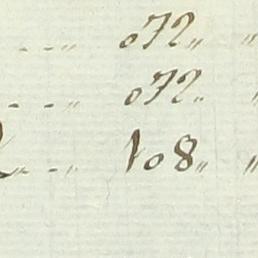 - - „ 072„ „
- - „ 072„ „
„ - „ 108„ „